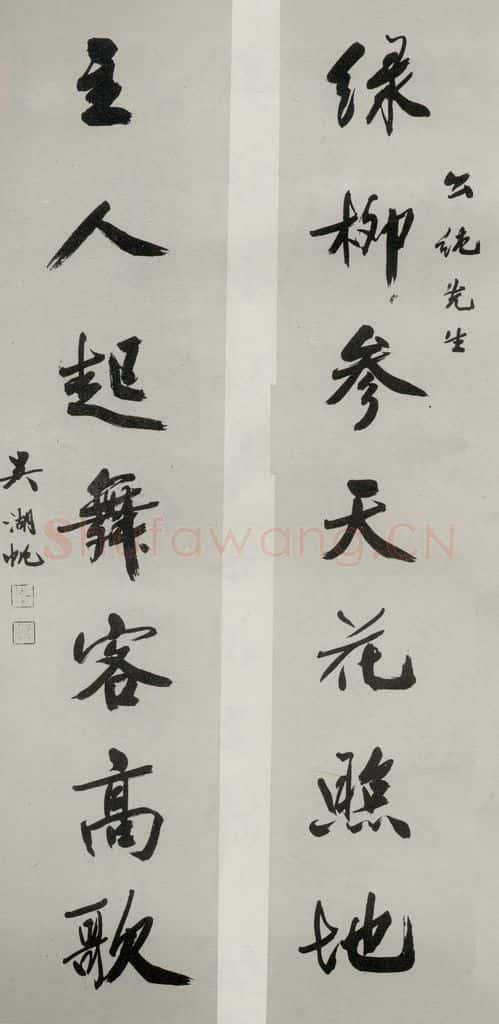 公純先生
緑柳参天花照地
主人起舞客高歌
吴湖帆
Shufawang.CN